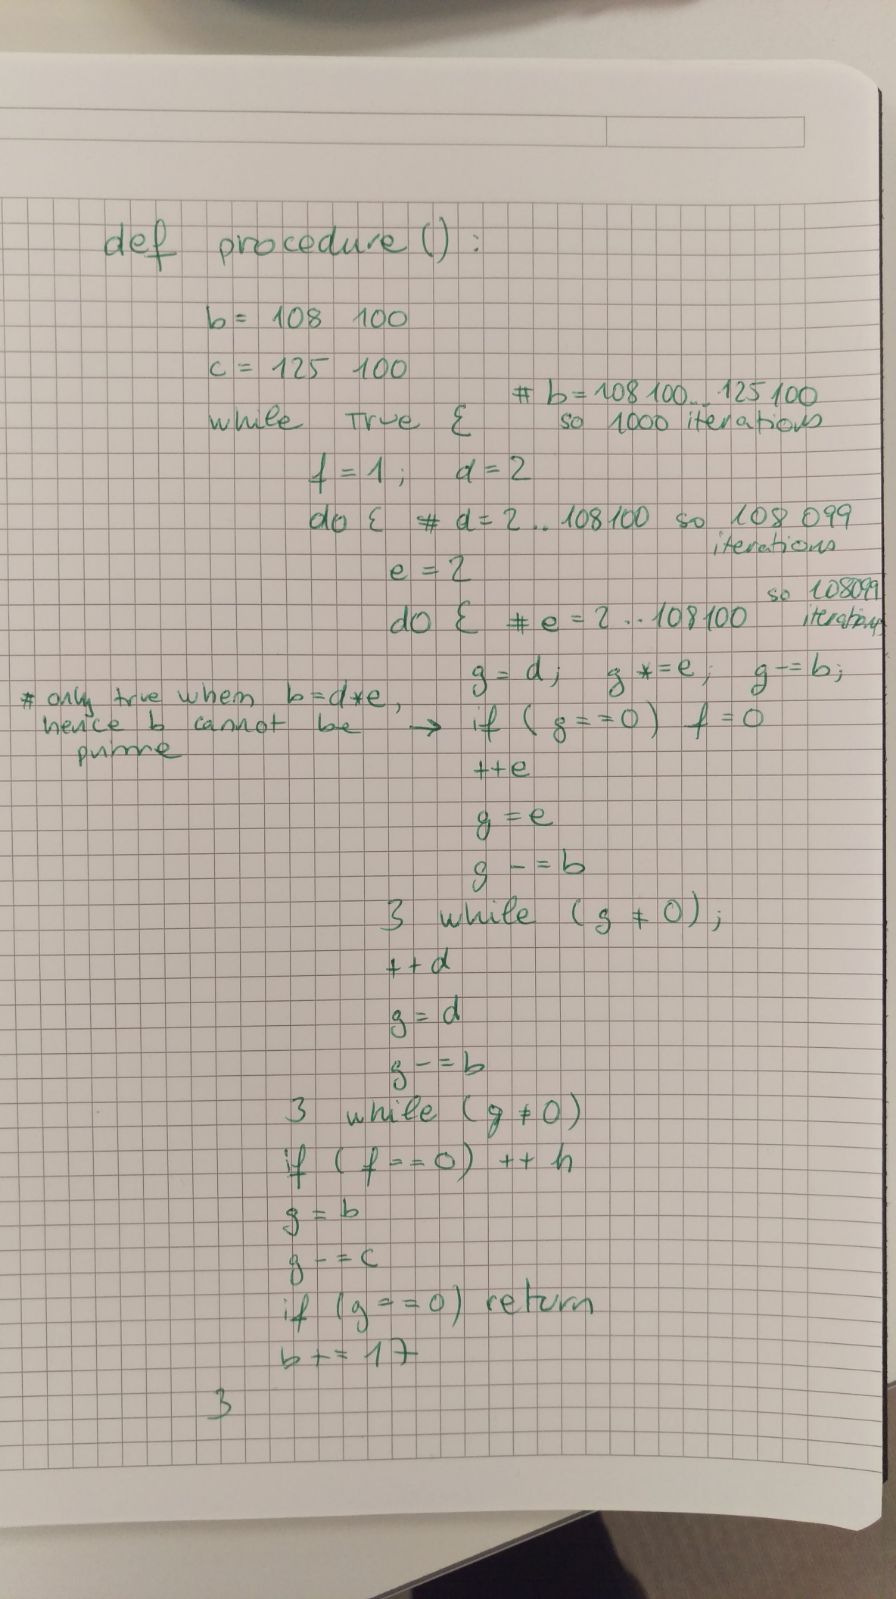 def procedure():
b = 108 100
c = 125 100
# b = 108 100... 125 100
while True {
so 1000 iterations
f = 1; d = 2
do { # d = 2 .. 108100 so 108 099
iterations
e = 2
so 108099
do { # e = 2 .. 108100
iterations
g = d; g *= e; g -= b;
# only true when b = d*e,
hence b cannot be → if (g == 0) f = 0
prime
++e
g = e
g -= b
} while (g ≠ 0);
++d
g = d
g -= b
} while (g ≠ 0)
if (f == 0) ++h
g = b
g -= c
if (g == 0) return
b += 17
}